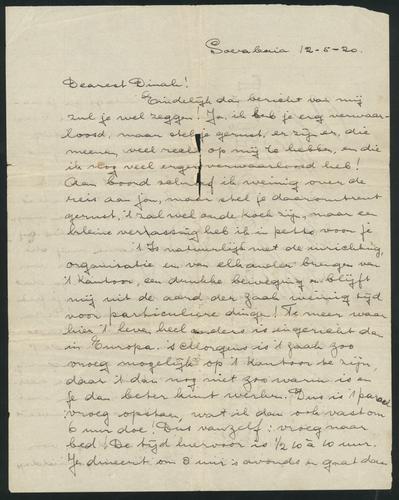 Soerabaia 12-5-20.
Dearest Dinah!
Eindelijk dan bericht van mij
zul je wel zeggen! Ja, ik heb je erg verwaar-
loosd, maar stel je gerust, er zijn er, die
meenen veel recht op mij te hebben, en die
ik nog veel erger verwaarloosd heb!
Aan boord schreef ik weinig over de
reis aan jou, maar stel je daaromtrent
gerust, 't zal wel oude koek zijn, maar een
kleine verrassing heb ik in petto voor je
't Is natuurlijk met de inrichting,
organisatie en van elkander brengen van
't kantoor, een drukke beweging en blijft
mij uit de aard der zaak weinig tijd
voor particuliere dinge! Te meer waar
hier 't leven heel anders is ingericht dan
in Europa. 's Morgens is 't zaak zoo
vroeg mogelijk op 't kantoor te zijn,
daar 't dan nog niet zoo warm is en
je dan beter kunt werken. Dus is 't parool
vroeg opstaan, wat ik dan ook vast om
6 uur doe! Dus vanzelf: vroeg naar
bed! De tijd hiervoor is ½ 10 à 10 uur.
Je dineert om 8 uur 's avonds en gaat dan